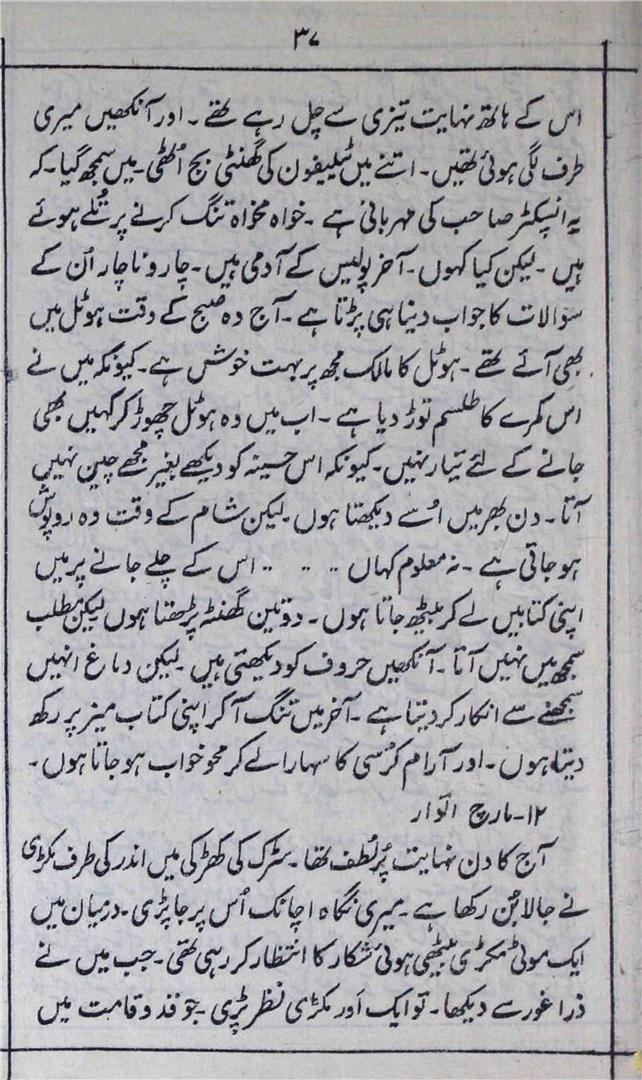 ۳۷
اس کے ہاتھ نہایت تیزی سے چل رہے تھے ۔ اور آنکھیں میری
طرف لگی ہوئی تھیں ۔ اتنے میں ٹیلیفون کی گھنٹی بج اُٹھی ۔ میں سمجھ گیا ۔ کہ
یہ انسپکٹر صاحب کی مہربانی ہے ۔ خواہ مخواہ تنگ کرنے پر تُلے ہوئے
ہیں ۔ لیکن کیا کہوں ۔ آخر پولیس کے آدمی ہیں ۔ چار و ناچار اُن کے
سوالات کا جواب دینا ہی پڑتا ہے ۔ آج وہ صبح کے وقت ہوٹل میں
بھی آئے تھے ۔ ہوٹل کا مالک مجھ پر بہت خوش ہے ۔ کیونکہ میں نے
اس کمرے کا طلسم توڑ دیا ہے ۔ اب میں وہ ہوٹل چھوڑ کر کہیں بھی
جانے کے لئے تیار نہیں ۔ کیونکہ اس حسینہ کو دیکھے بغیر مجھے چین نہیں
آتا ۔ دن بھر میں اُسے دیکھتا ہوں ۔ لیکن شام کے وقت وہ روپوش
ہو جاتی ہے ۔ نہ معلوم کہاں ۔۔ ۔۔ ۔۔ اس کے چلے جانے پر میں
اپنی کتابیں لے کر بیٹھ جاتا ہوں ۔ دو تین گھنٹہ پڑھتا ہوں لیکن مطلب
سمجھ میں نہیں آتا ۔ آنکھیں حروف کو دیکھتی ہیں ۔ لیکن دماغ انہیں
سمجھنے سے انکار کر دیتا ہے ۔ آخر میں تنگ آ کر اپنی کتاب میز پر رکھ
دیتا ہوں ۔ اور آرام کُرسی کا سہارا لے کر محو خواب ہو جاتا ہوں ۔
۱۲ ۔ مارچ اتوار
آج کا دن نہایت پُر لُطف تھا ۔ سڑک کی کھڑکی میں اندر کی طرف مکڑی
نے جالا بُن رکھا ہے ۔ میری نگاہ اچانک اُس پر جا پڑی ۔ درمیان میں
ایک موٹی مکڑی بیٹھی ہوئی شکار کا انتظار کر رہی تھی ۔ جب میں نے
ذرا غور سے دیکھا ۔ تو ایک اَور مکڑی نظر پڑی ۔ جو قد و قامت میں